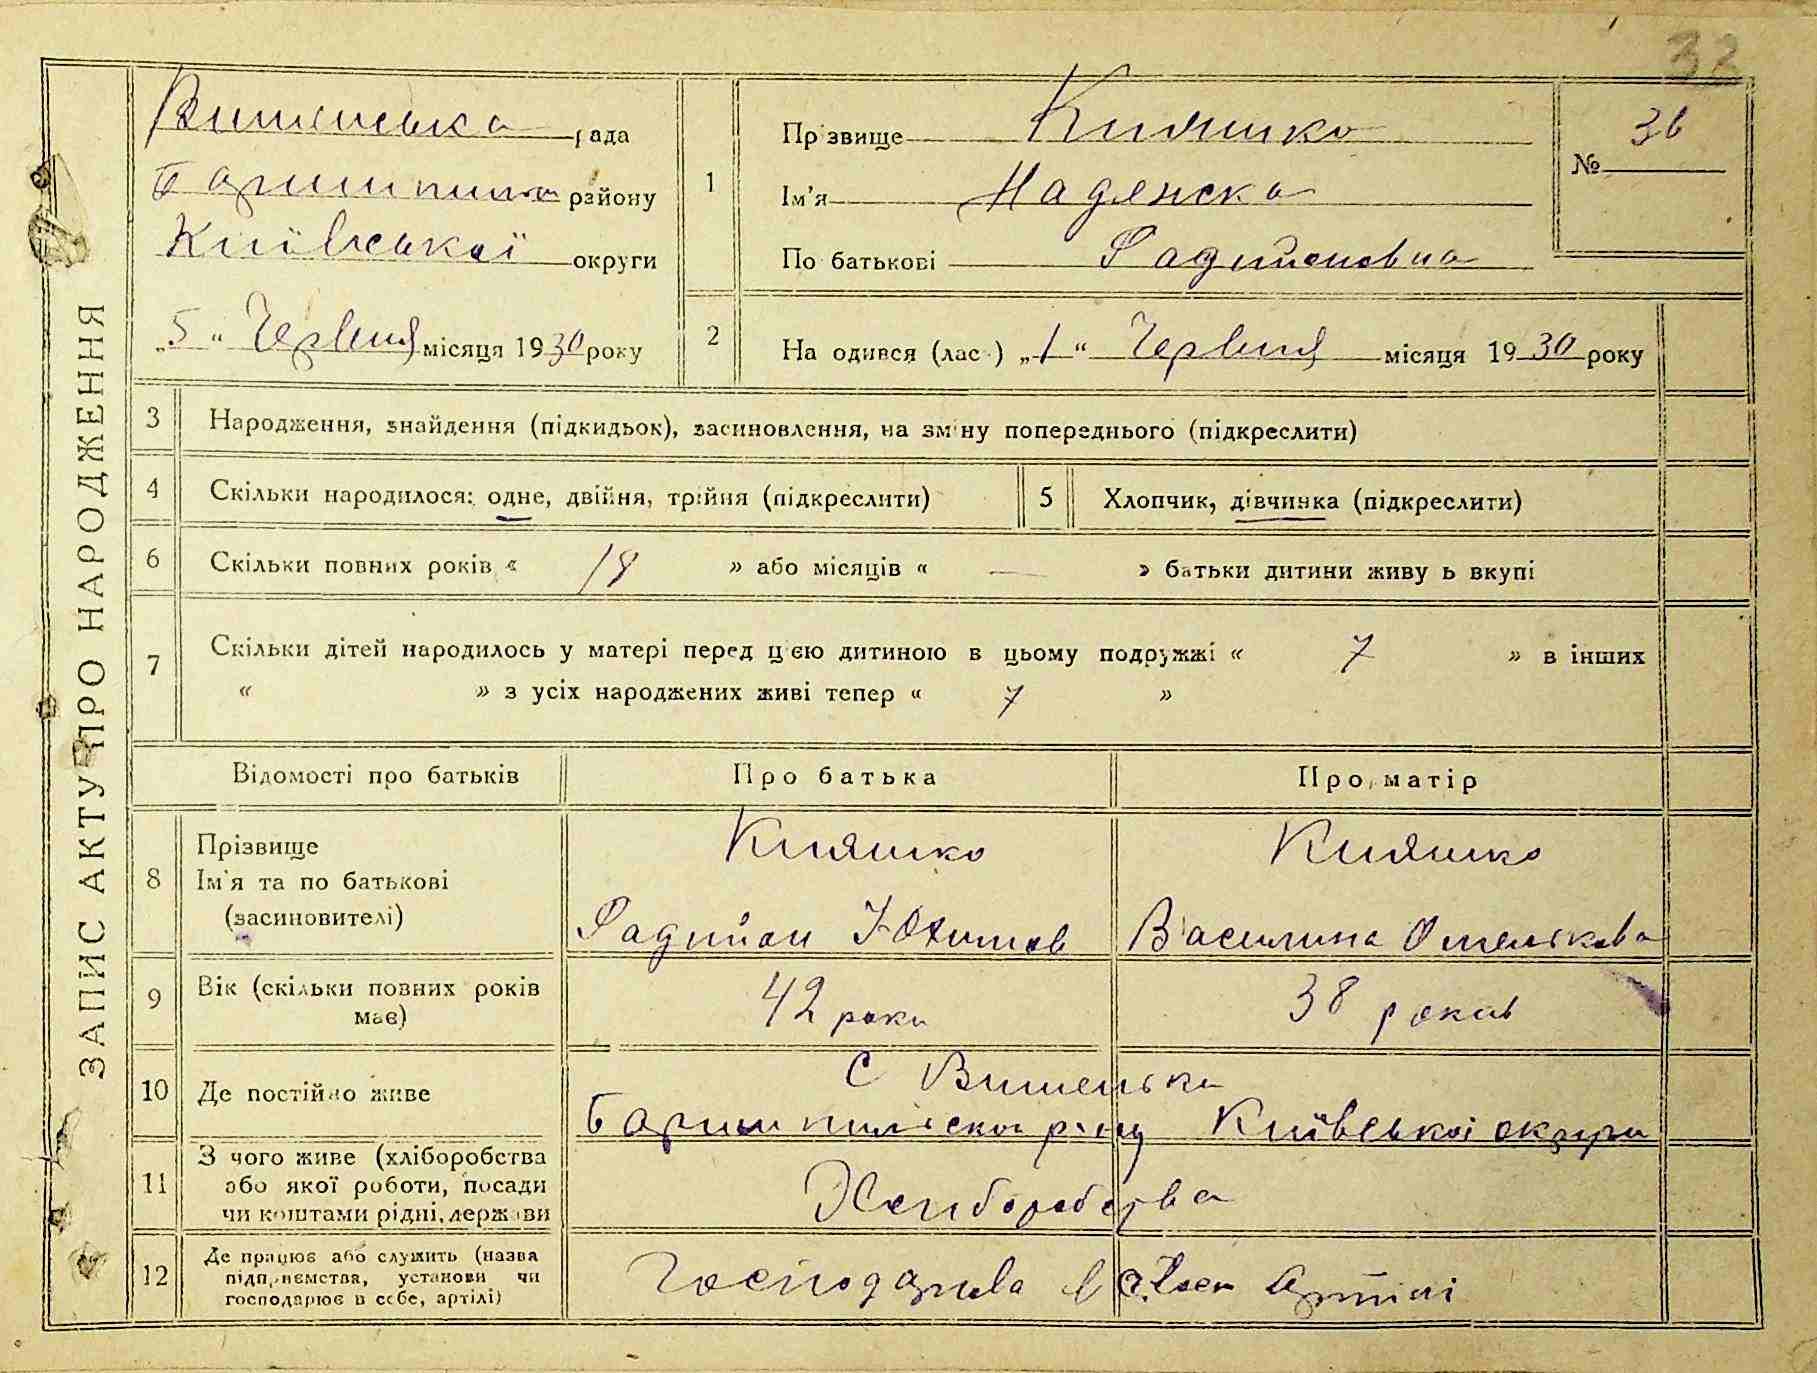 32
ЗАПИС АКТУ ПРО НАРОДЖЕННЯ
рада
району
Київської округи
„5“ Червня місяця 1930 року
1
Прізвище Кияшко
Ім'я
По батькові Радийоновна
№ 36
2
На одився (лас ) „1“ Червня місяця 1930 року
3 Народження, знайдення (підкидьок), засиновлення, на зміну попереднього (підкреслити)
4 Скільки народилося: одне, двійня, трійня (підкреслити)
5 Хлопчик, дівчинка (підкреслити)
6 Скільки повних років « 18 » або місяців « — » батьки дитини живу ь вкупі
7 Скільки дітей народилось у матері перед цією дитиною в цьому подружжі « 7 » в інших
« » з усіх народжених живі тепер « 7 »
Відомості про батьків Про батька Про матір
8 Прізвище
Ім'я та по батькові
(засиновителі)
Кияшко
Радийон Юхимов
Кияшко
Василина Омелькова
9 Вік (скільки повних років
має)
42 роки
38 років
10 Де постійно живе
С Вишеньки
Київської округи
11 З чого живе (хліборобства
або якої роботи, посади
чи коштами рідні, держави
Хліборобства
12 Де працює або служить (назва
підприємства, установи чи
господарює в себе, артілі)
в артілі